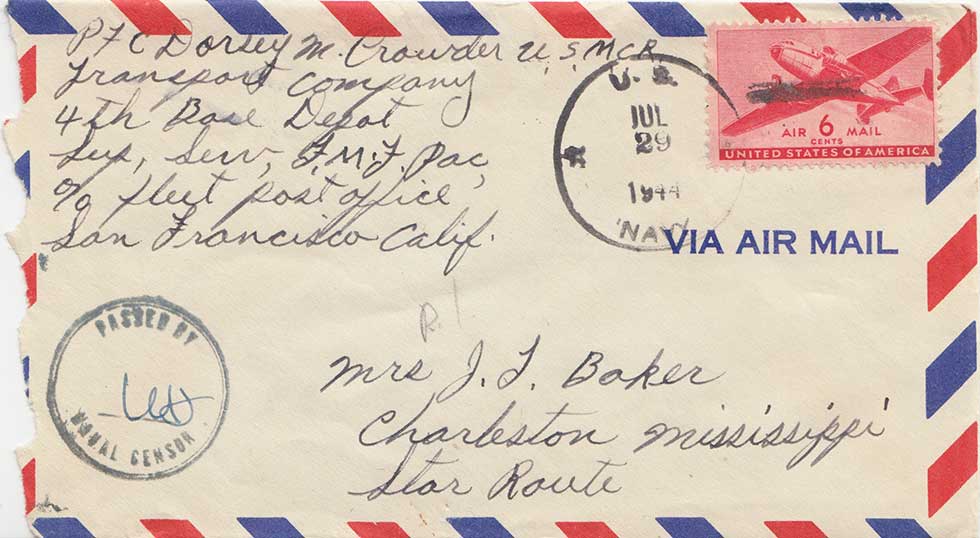 PFC Dorsey M. Crowder U.S.M.C.R.
Transport Company
4th Base Depot
Sup, Serv, F.M.F. Pac,
c/o fleet post office
San Francisco Calif.
U.S.
JUL
29
1944
NAVY
AIR 6 MAIL
CENTS
UNITED STATES OF AMERICA
VIA AIR MAIL
PASSED BY
NAVAL CENSOR
Mrs J. T. Baker
Charleston Mississippi
Star Route